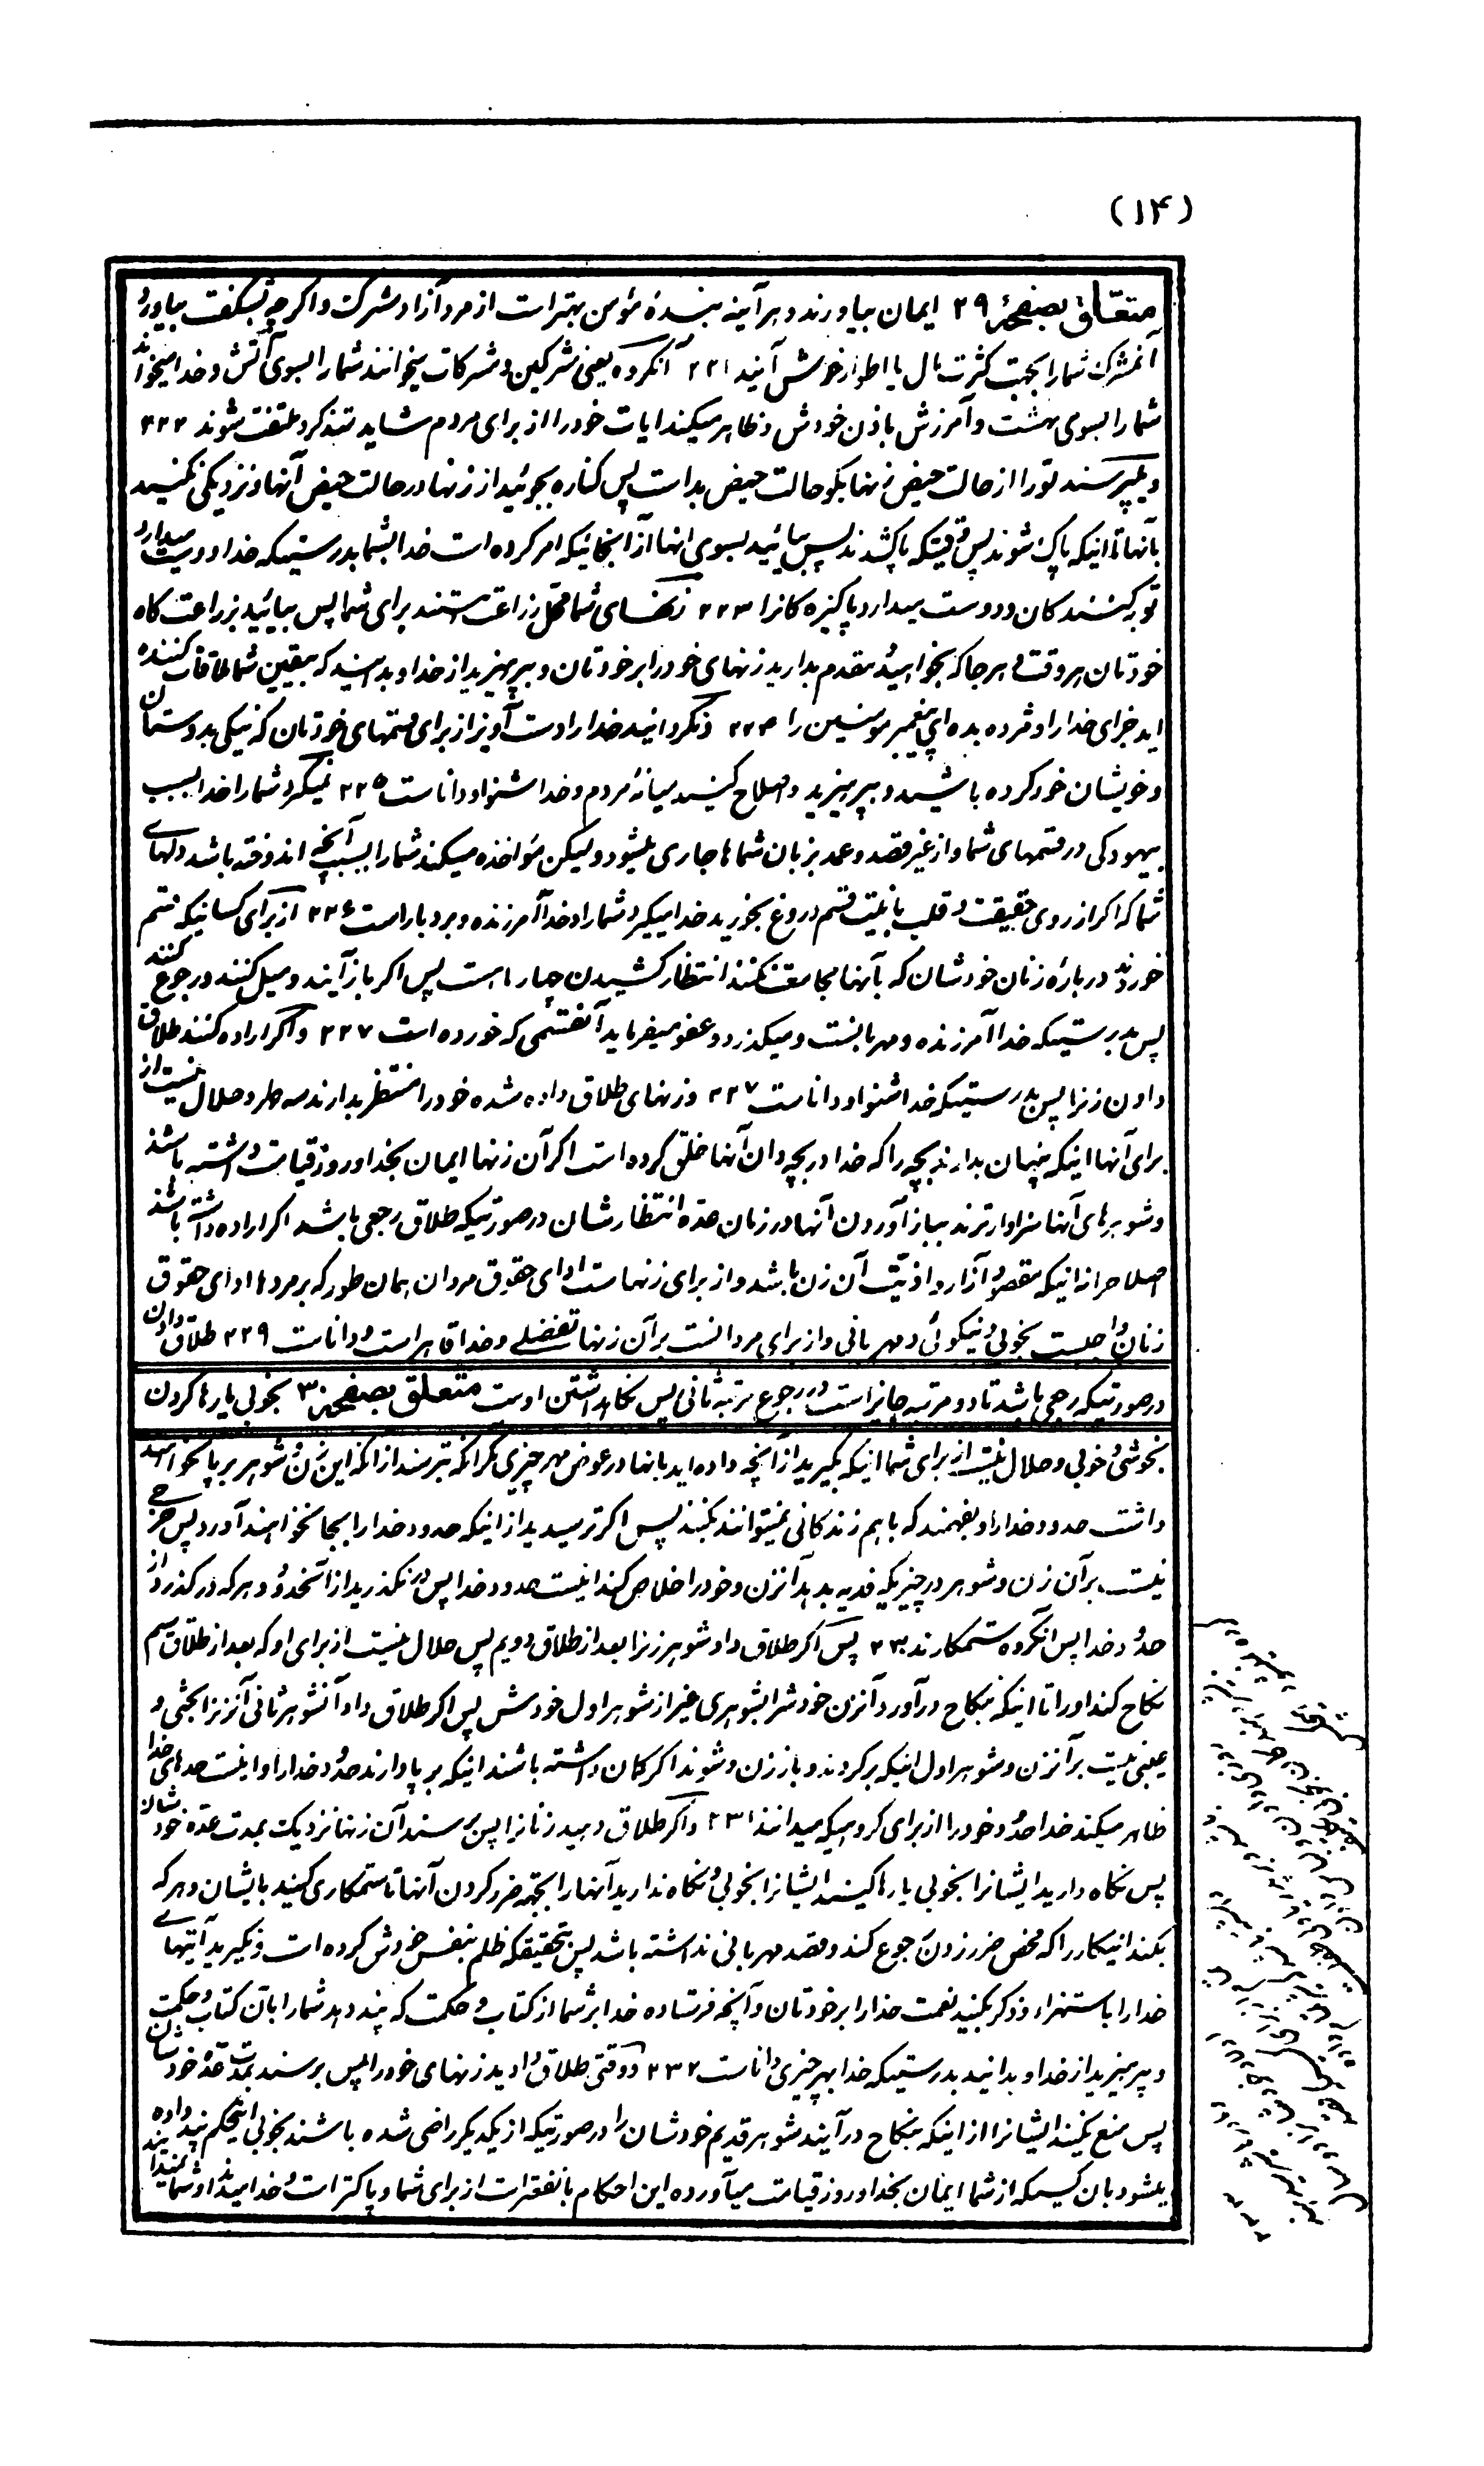 (۱۴)
متعلق بصفحهٔ ۲۹ ایمان بیاورند و هر آینه بندهٔ مؤمن بهتر است از مرد آزاد مشرک و اگر چه بشگفت بیاورد
آنمشرک شما را بجهت کثرت مال یا اطوار خوش آیند ۲۲۱ آنگروه یعنی مشرکین و مشرکات میخوانند شما را بسوی آتش و خدا میخواند
شما را بسوی بهشت و آمرزش باذن خودش و ظاهر میکند ایات خود را از برای مردم شاید متذکر و ملتفت شوند ۲۲۲
و میپرسند تو را از حالت حیض زنها بگو حالت حیض بد است پس کناره بجوئید از زنها در حالت حیض آنها و نزدیکی نکنید
بآنها تا اینکه پاک شوند پس وقتیکه پاکشدند پس بیائید بسوی انها از آنجائیکه امر کرده است خدا بشما بدرستیکه خدا دوست میدارد
توبه کنندگان و دوست میدارد پاکیزه کانرا ۲۲۳ زنهای شما محل زراعت هستند برای شما پس بیائید بزراعت کاه
خودتان هر وقت و هر جا که بخواهید و مقدم بدارید زنهای خود را بر خودتان و بپرهیزید از خدا و بدانید که بیقین شما ملاقات کننده
اید جزای خدا را و مژده بده ای پیغمبر مومنین را ۲۲۴ و نگردانید خدا را دست آویز از برای قسمهای خودتان که نیکی بدوستان
و خویشان خود کرده باشید و بپرهیزید و اصلاح کنید میانهٔ مردم و خدا شنوا و داناست ۲۲۵ نمیگیرد شما را خدا بسبب
بیهودگی در قسمهای شما و از غیر قصد و عمد بزبان شماها جاری میشود و لیکن مؤاخذه میکند شما را بسبب آنچه اندوخته باشد دلهای
شما که اگر از روی حقیقت و قلب با نیت قسم دروغ بخورید خدا میگیرد شما را و خدا آمرزنده و بردبار است ۲۲۶ از برای کسانیکه قسم
خوردند در بارهٔ زنان خودشان که بآنها مجامعت نکنند انتظار کشیدن چهار ماه است پس اگر باز آیند و میل کنند و رجوع کنند
پس بدرستیکه خدا آمرزنده و مهربانست و میگذرد و عفو میفرماید آنقسمی که خورده است ۲۲۷ و اگر اراده کنند طلاق
دادن زنرا پس بدرستیکه خدا شنوا و داناست ۲۲۷ و زنهای طلاق داده شده خود را منتظر بدارند سه طهر و حلال نیست از
برای آنها اینکه پنهان بدارند بچه را که خدا در بچه دان آنها خلق کرده است اگر آن زنها ایمان بخدا و روز قیامت داشته باشند
و شوهرهای آنها سزاوارترند بباز آوردن آنها در زمان عده انتظارشان در صورتیکه طلاق رجعی باشد اگر اراده داشته باشند
اصلاح را نه اینکه مقصود آزار و اذیت آن زن باشد و از برای زنهاست ادای حقوق مردان همان طور که بر مردها ادای حقوق
زنان واجبست بخوبی و نیکوئی و مهربانی و از برای مردانست بر آن زنها تفضلی و خدا قاهر است و داناست ۲۲۹ طلاق دادن
در صورتیکه رجعی باشد تا دو مرتبه جایز است در رجوع مرتبهٔ ثانی پس نکاهداشتن اوست متعلق بصفحهٔ ۳۰ بخوبی یا رها کردن
بخوشی و خوبی و حلال نیست از برای شما اینکه بگیرید از آنچه داده اید بانها در عوض مهر چیزی مگر آنکه بترسند از آنکه این زن و شوهر بر پا نخواهند
داشت حدود خدا را و بفهمند که با هم زندکانی نمیتوانند بکنند پس اکر ترسیدید از اینکه حدود خدا را بجا نخواهند آورد پس حرجی
نیست بر آن زن و شوهر در چیزیکه فدیه بدهد آنزن و خود را خلاص کند اینست حدود خدا پس در نگذرید از آنحدود و هر که در گذرد از
حدود خدا پس آنگروه ستمکارند ۲۳۰ پس اگر طلاق داد شوهر زنرا بعد از طلاق دویم پس حلال نیست از برای او که بعد از طلاق سیم
نکاح کند او را تا اینکه بنکاح در آورد آنزن خودش را بشوهری غیر از شوهر اول خودش پس اگر طلاق داد آنشوهر ثانی آنزنرا بحثی و
عیبی نیست بر آنزن و شوهر اول اینکه برگردند و باز زن و شوند اگر گمان داشته باشند اینکه بر پا دارند حدود خدا را و اینست حدهای خدا
ظاهر میکند خدا حدود خود را از برای گروهیکه میدانند ۲۳۱ و اگر طلاق دهید زنانرا پس برسند آن زنها نزدیک بمدت عده خودشان
پس نگاه دارید ایشانرا بخوبی یا رها کنید ایشانرا بخوبی و نگاه ندارید آنها را بجهة ضرر کردن آنها تا ستمکاری کنید بایشان و هر که
بکند اینکار را که محض ضرر زدن رجوع کند و قصد مهربانی نداشته باشد پس بتحقیقکه ظلم بنفس خودش کرده است و نگیرید آیتهای
خدا را باستهزاء و ذکر بکنید نعمت خدا را بر خودتان و آنچه فرستاده خدا بر شما از کتاب و حکمت که پند دهد شما را بآن کتاب و حکمت
و بپرهیزید از خدا و بدانید بدرستیکه خدا بهر چیزی داناست ۲۳۲ و وقتی طلاق دادید زنهای خود را پس برسند بمدت عدهٔ خودشان
پس منع نکنید ایشانرا از اینکه بنکاح در آیند شوهر قدیم خودشان را در صورتیکه از یکدیگر راضی شده باشند بخوبی اینحکم پند داده
میشود بان کسیکه از شما ایمان بخدا و روز قیامت میآورد این احکام با نفعتر است از برای شما و پاکتر است و خدا میداند و شما نمیدانید